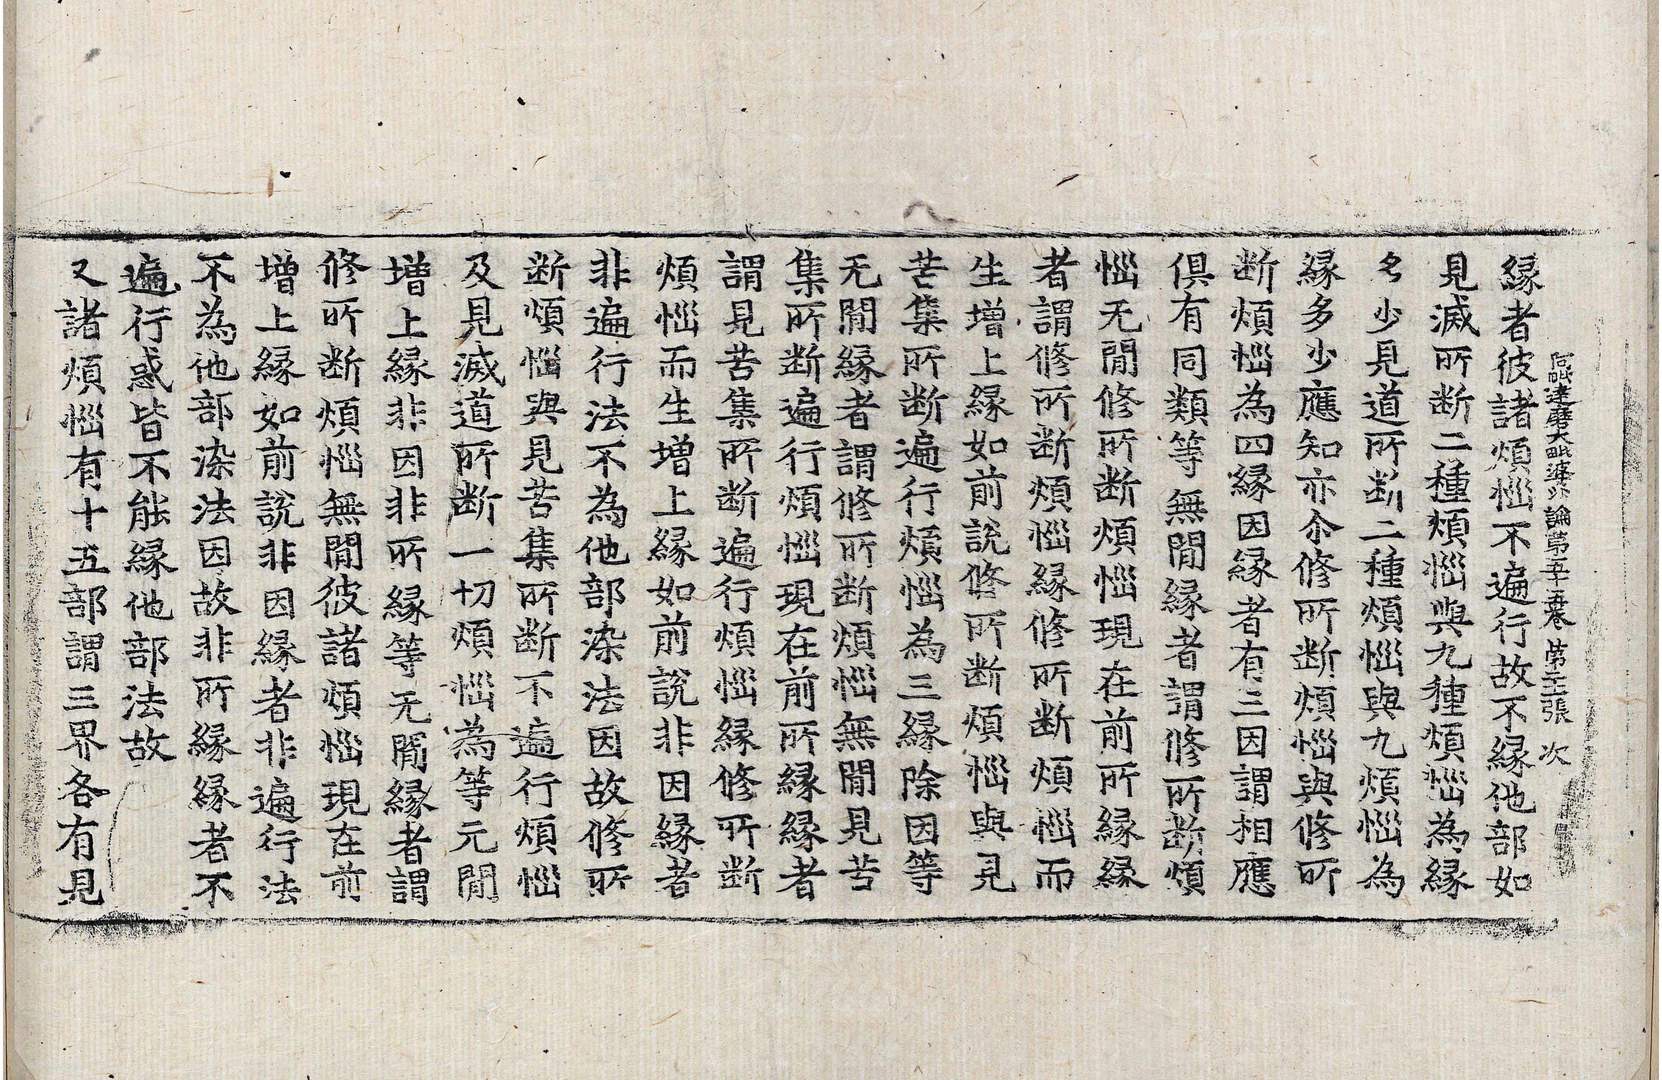 阿毗達磨大毗婆沙論第五十五卷 第十二張 次
緣者彼諸煩惱不遍行故不緣他部如
見滅所断二種煩惱與九種煩惱為緣
多少見道所断二種煩惱與九煩惱為
緣多少應知亦尒修所断煩惱與修所
断煩惱為四緣因緣者有三因謂相應
俱有同類等無閒緣者謂修所断煩
惱无閒修所断煩惱現在前所緣緣
者謂修所断煩惱緣修所断煩惱而
生增上緣如前說修所断煩惱與見
苦集所断遍行煩惱為三緣除因等
无閒緣者謂修所断煩惱無閒見苦
集所断遍行煩惱現在前所緣緣者
謂見苦集所断遍行煩惱緣修所断
煩惱而生增上緣如前說非因緣者
非遍行法不為他部染法因故修所
断煩惱與見苦集所断不遍行煩惱
及見滅道所断一切煩惱為等无閒
增上緣非因非所緣等无閒緣者謂
修所断煩惱無閒彼諸煩惱現在前
增上緣如前說非因緣者非遍行法
不為他部染法因故非所緣緣者不
遍行惑皆不能緣他部法故
又諸煩惱有十五部謂三界各有見